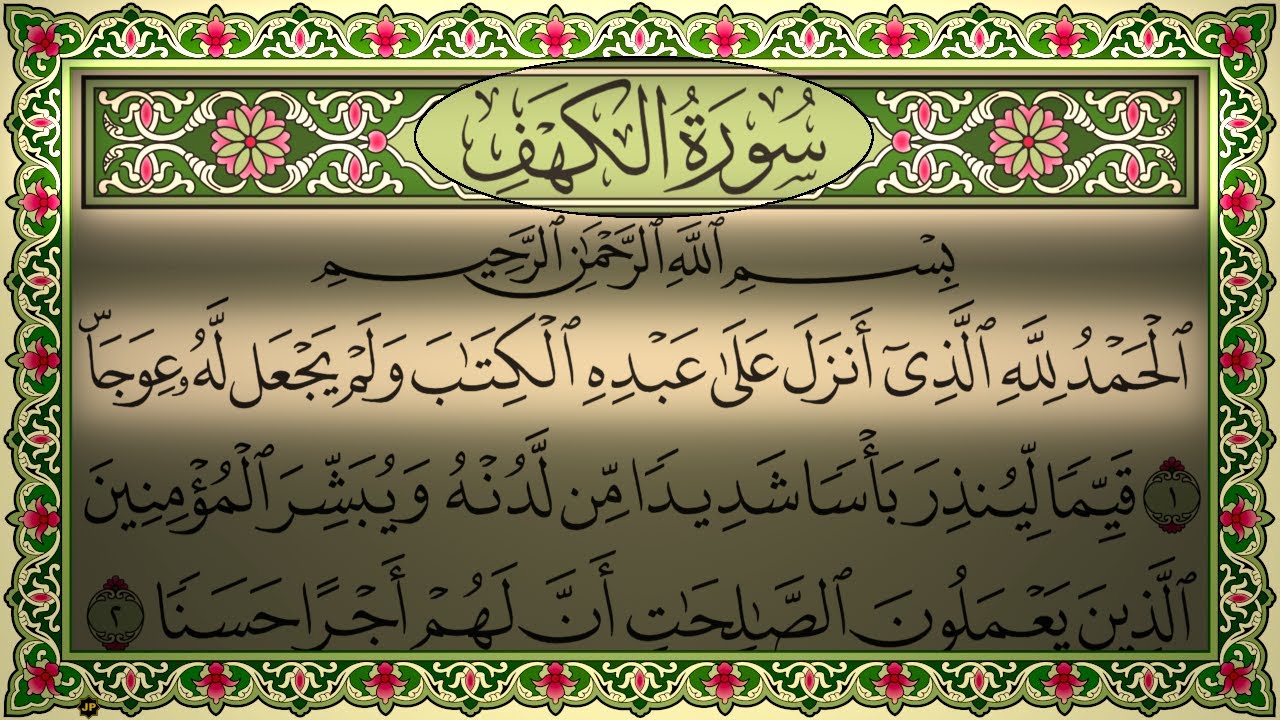 سُورَةُ الكَهْفِ
بِسْمِ ٱللَّهِ ٱلرَّحْمَٰنِ ٱلرَّحِيمِ
ٱلْحَمْدُ لِلَّهِ ٱلَّذِىٓ أَنزَلَ عَلَىٰ عَبْدِهِ ٱلْكِتَٰبَ وَلَمْ يَجْعَل لَّهُۥ عِوَجَاۜ
١ قَيِّمًا لِّيُنذِرَ بَأْسًا شَدِيدًا مِّن لَّدُنْهُ وَيُبَشِّرَ ٱلْمُؤْمِنِينَ
ٱلَّذِينَ يَعْمَلُونَ ٱلصَّٰلِحَٰتِ أَنَّ لَهُمْ أَجْرًا حَسَنًا ٢
JP